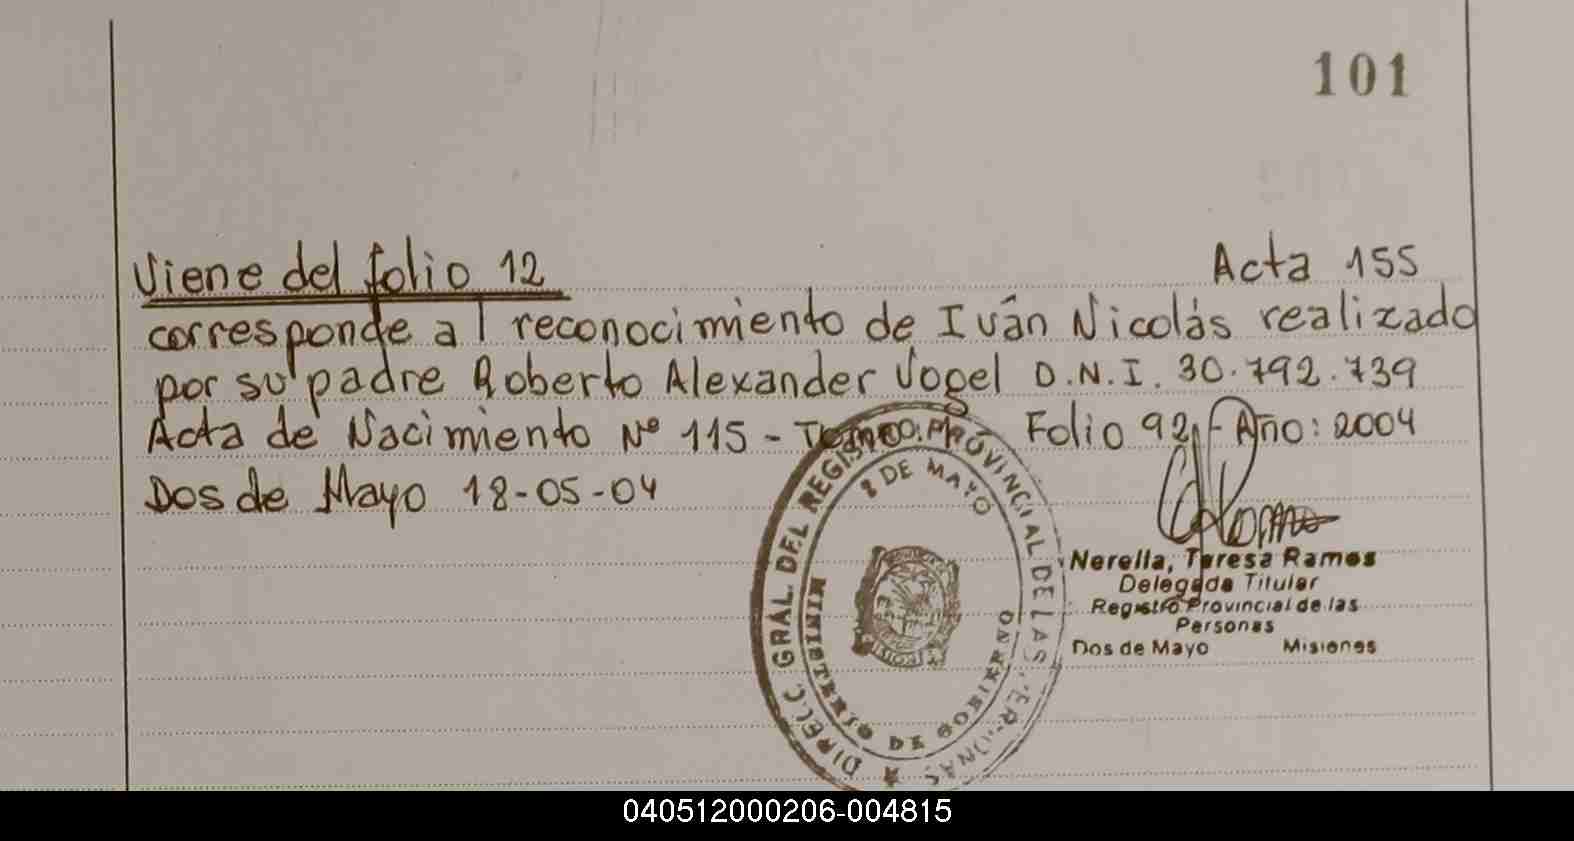 101
Viene del folio 12 Acta 155
corresponde al reconocimiento de Iván Nicolás realizado
por su padre Roberto Alexander Vogel D.N.I. 30.792.739
Acta de Nacimiento Nº 115 - Folio 92 - Año: 2004
Dos de Mayo 18-05-04
DIRECC. GRAL. DEL REGISTRO PROVINCIAL DE LAS PERSONAS
2 DE MAYO
MINISTERIO DE GOBIERNO
Nerella, Teresa Ramos
Delegada Titular
Registro Provincial de las
Personas
Dos de Mayo Misiones
040512000206-004815